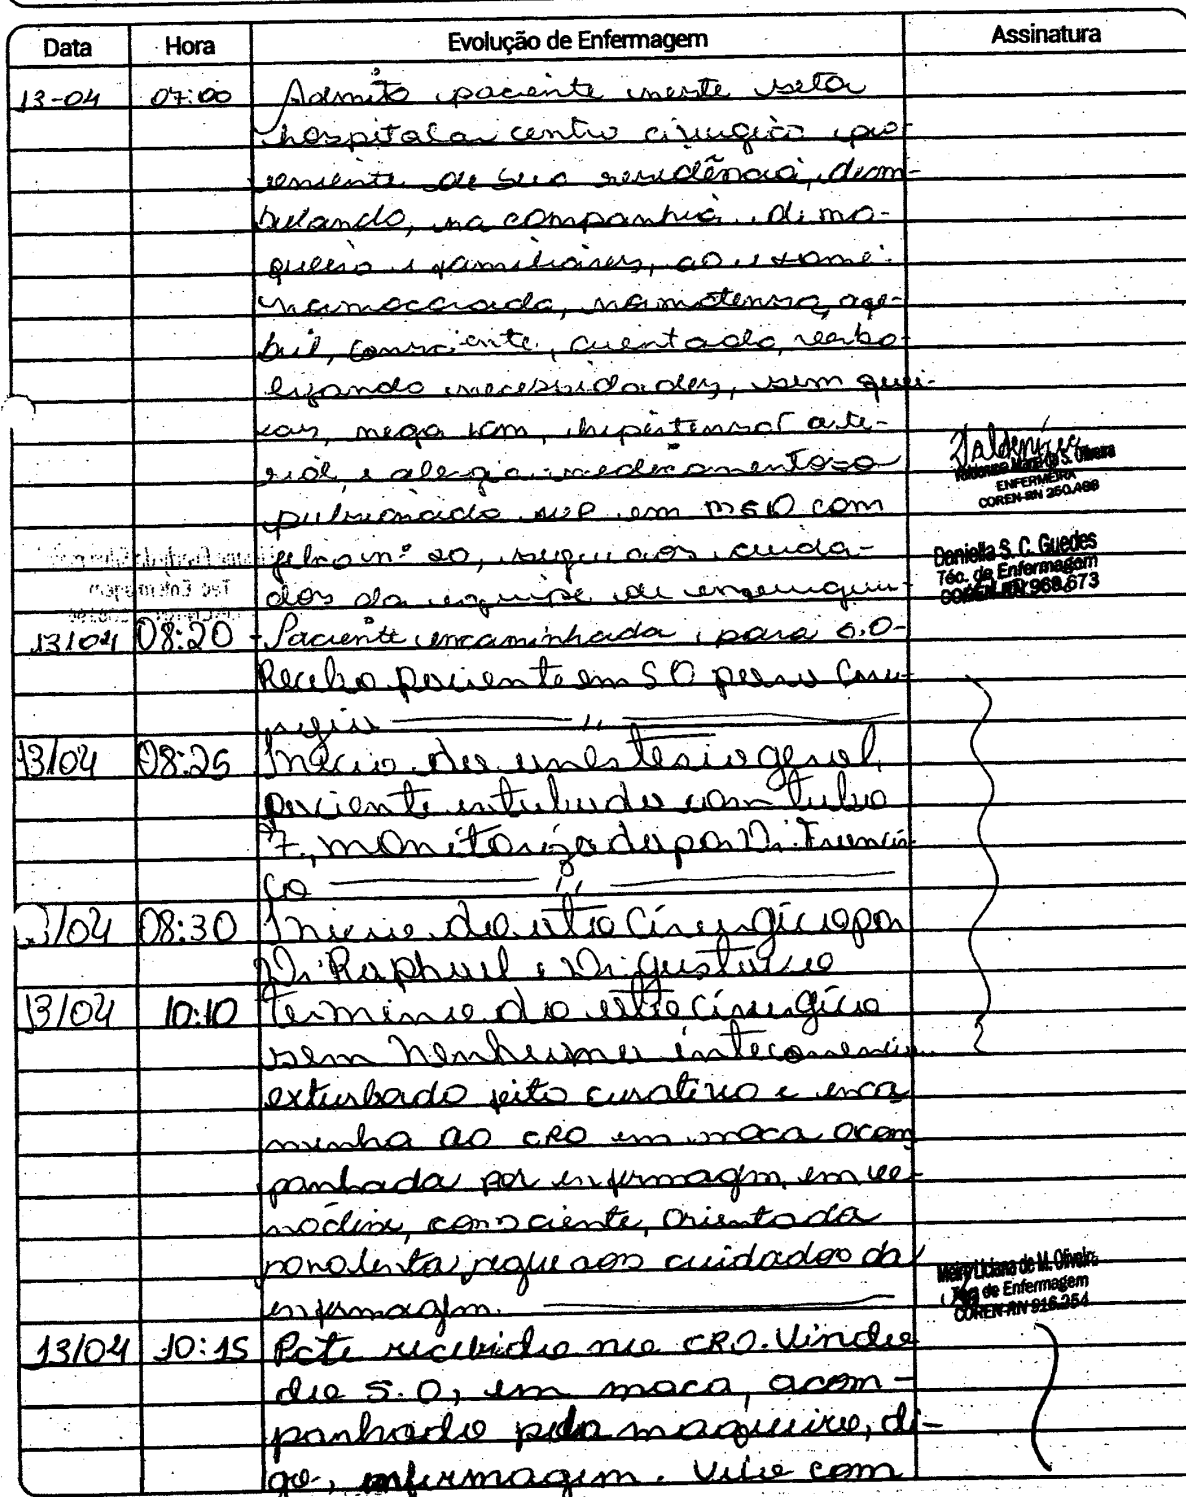 Data Hora Evolução de Enfermagem Assinatura
13-04 07:00 Admito paciente neste seto
hospitalar centro cirurgico pro
veniente de sua residência, deam-
bulando, na companhia de ma-
queiro e familiares, ao exame:
normocorada, normotensa, afe-
bril, consciente, orientada, verba-
lizando necessidades, sem quei-
xas, nega DM, hipertensão arte-
rial, e alergia medicamentosa
puncionado AVP em MSD com
jelco nº 20, segue aos cuida-
dos da equipe de enfermagem
Valdenira
ENFERMEIRA
COREN-RN 250.498
Daniella S. C. Guedes
Téc. de Enfermagem
COREN-RN 968.673
13/04 08:20 - Paciente encaminhada para S.O-
Recebo paciente em SO para Ciru-
rgia
13/04 08:25 Inicio da anestesia geral,
paciente intubada com tubo
7, monitorizada por Dr. Francis
co
13/04 08:30 Inicio do ato Cirurgico por
Dr. Raphael e Dr. Gustavo
13/04 10:10 termino do ato cirurgico
sem nenhuma intecorrencia
exturbado feito curativo e enca
minha ao CRO em maca acom
panhada por enfermagm em ve-
nóclise, consciente, orientada
sonolenta segue aos cuidados da
enfermagm.
Meiry Liciana de M. Oliveira
Téc. de Enfermagem
COREN-RN 916.254
13/04 10:15 Pcte recebido no CRO. Vindo
da S.O, em maca, acom-
panhado pela maqueiro, di-
go, enfermagem. Veio com